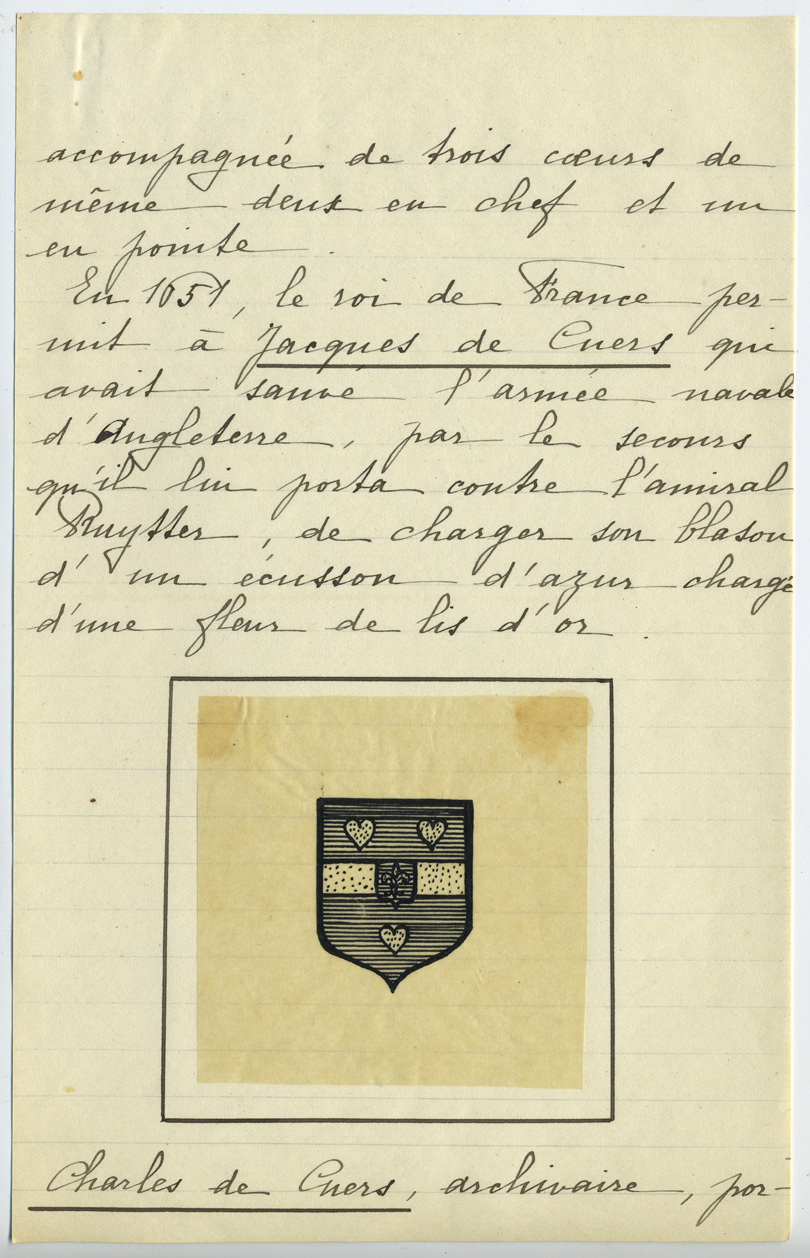 accompagnée de trois cœurs de
même deux en chef et un
en pointe.
En 1651, le roi de France per-
mit à Jacques de Cuers qui
avait sauvé l'armée navale
d'Angleterre, par le secours
qu'il lui porta contre l'amiral
Ruytter, de charger son blason
d'un écusson d'azur chargé
d'une fleur de lis d'or.
Charles de Cuers, archivaire, por-